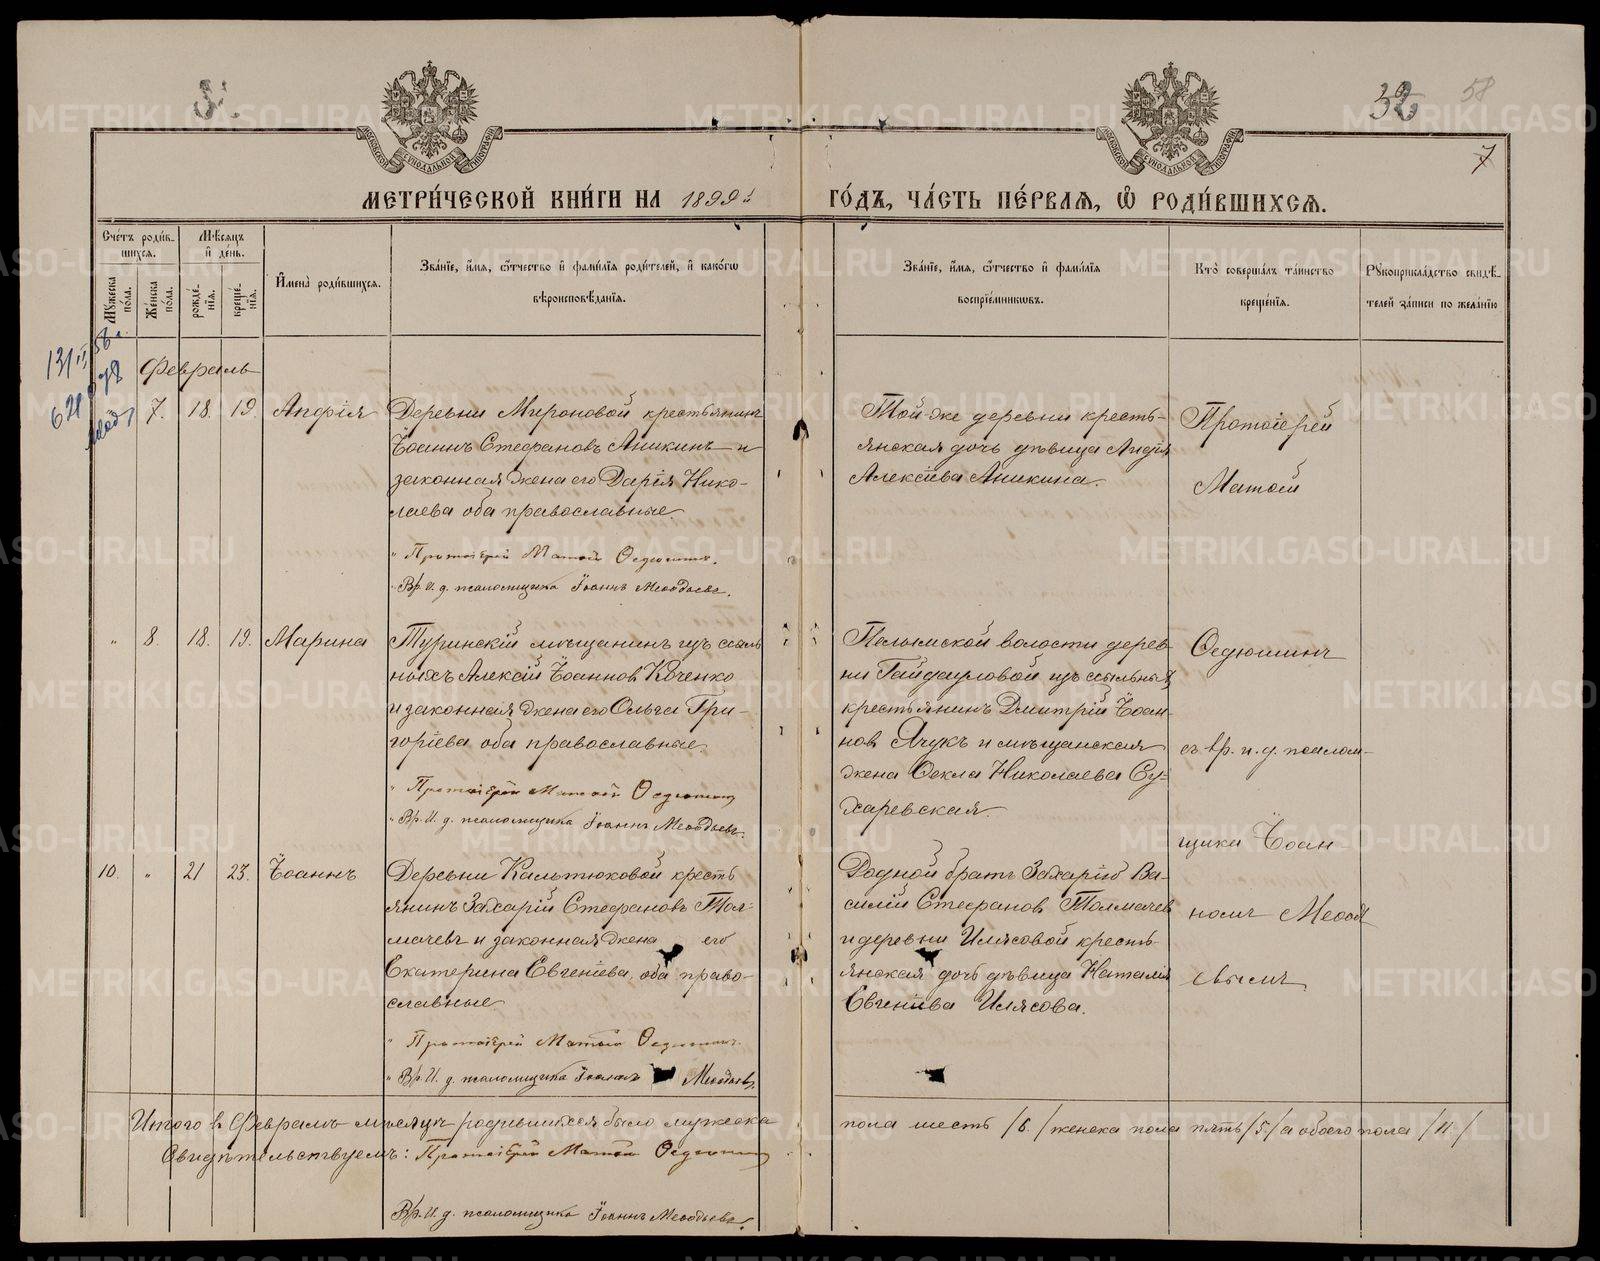 32
58
7
МЕТРИ́ЧЕСКОЙ КНИ́ГИ НА 1899й ГО́ДЪ, ЧА́СТЬ ПЕ́РВАѦ, Ѡ҆ РОДИ́ВШИХСѦ.
Сче́тъ роди́в-
шихсѧ.
Мѣ́сѧцъ
и҆ де́нь.
Мꙋжеска
по́ла.
Же́нска
по́ла.
рожде́-
нїѧ.
креще́-
нїѧ.
И҆мена̀ роди́вшихсѧ.
Зва́нїе, и҆́мѧ, ѻ҆́тчество и҆ фами́лїѧ роди́телей, и҆ како́гѡ
вѣроисповѣ́данїѧ.
Зва́нїе, и҆́мѧ, ѻ҆́тчество и҆ фами́лїѧ
воспрїе́мникѡвъ.
Кто̀ соверша́лъ та́инство
креще́нїѧ.
Рꙋкоприкла́дство свидѣ́-
телей за́писи по жела́нїю
Февраль
7. 18. 19. Анфія
Деревни Мироновой крестьянинъ
Іоаннъ Стефановъ Аникинъ и
законная жена его Дарія Нико-
лаева оба православные.
Протоіерей Матѳій Ѳедюшинъ.
Вр. И. д. псаломщика Іоаннъ Меѳодьевъ.
Той-же деревни кресть-
янская дочь дѣвица Лидія
Алексіева Аникина.
Протоіерей
Матѳій
" 8. 18. 19. Марина
Туринскій мѣщанинъ изъ ссыль
ныхъ Алексій Іоанновъ Коченко
и законная жена его Ольга Гри-
горіева оба православные.
Протоіерей Матѳій Ѳедюшинъ
Вр. И. д. псаломщика Іоаннъ Меѳодьевъ.
Пелымской волости дерев-
ни Гайдауловой изъ ссыльныхъ
крестьянинъ Дмитрій Іоан-
новъ Ячукъ и мѣщанская
жена Ѳекла Николаева Су-
харевская.
Ѳедюшинъ
съ вр. и. д. псалом-
щика Іоан-
10. " 21 23. Іоаннъ
Деревни Кальтюковой кресть
янинъ Захарій Стефановъ Тол-
мачевъ и законная жена его
Екатерина Евгеніева, оба право-
славные
Протоіерей Матѳій Ѳедюшинъ.
Вр. И. д. псаломщика Іоаннъ Меѳодьевъ.
Родной братъ Захарія Ва-
силій Стефановъ Толмачев
и деревни Илясовой кресть-
янская дочь дѣвица Наталія
Евгеніева Илясова.
номъ Меѳодь
евымъ
Итого въ Февралѣ мѣсяцѣ родившихся было мужеска пола шесть /6./ женска пола пять /5./ а обоего пола /11./
Свидѣтельствуемъ: Протоіерей Матѳій Ѳедюшинъ
Вр. И. д. псаломщика Іоаннъ Меѳодьевъ.
METRIKI.GASO-URAL.RU